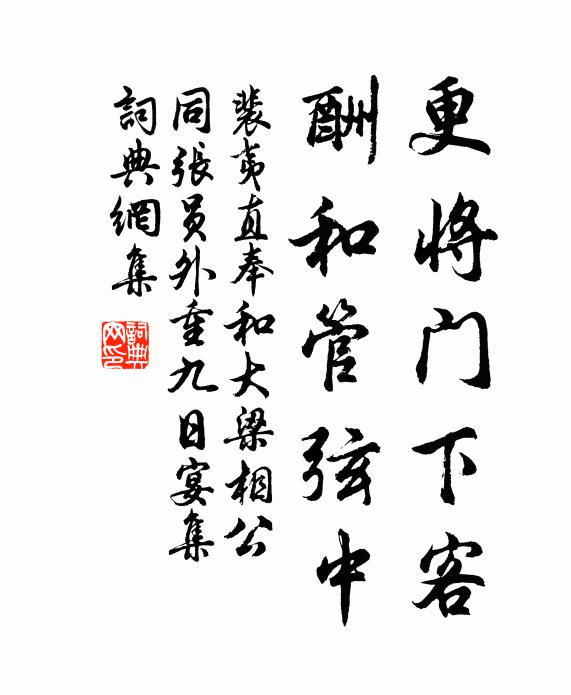 更將门下客
酬和管弦中
裴夷直奉和大梁相公
同張员外重九日宴集
詞典網集
詞典
网印